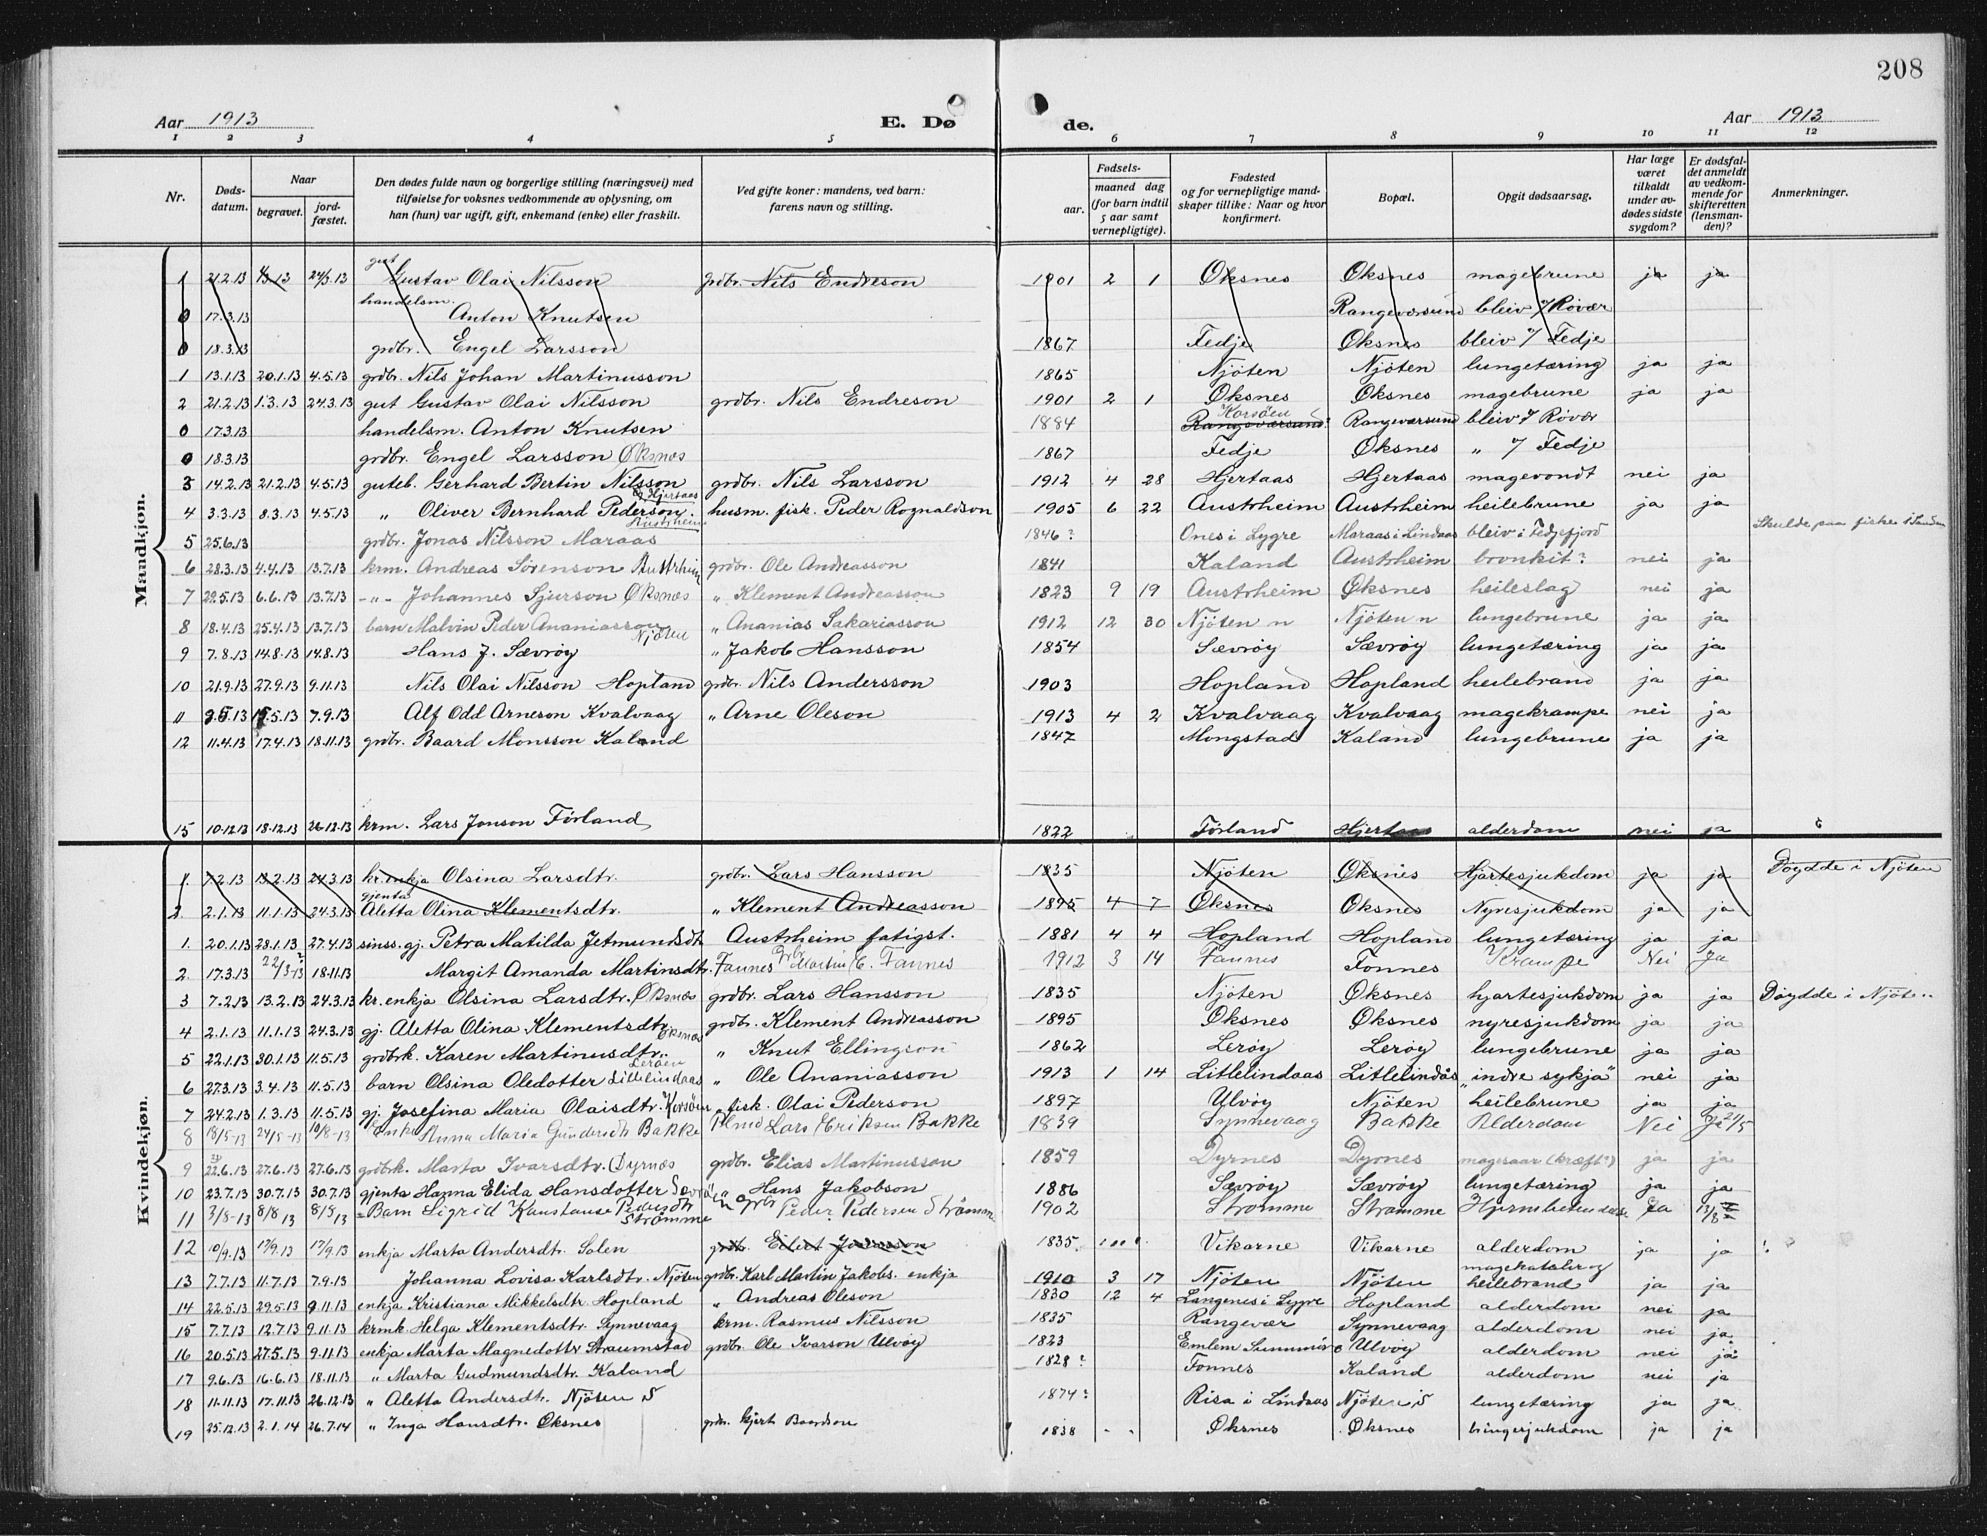 208
Aar 1913 E. Dø de. Aar 1913
1 2 3 4 5 6 7 8 9 10 11 12
Nr. Døds-datum. Naar begravet. jord-fæstet. Den dødes fulde navn og borgerlige stilling (næringsvei) med tilføielse for voksnes vedkommende av oplysning, om han (hun) var ugift, gift, enkemand (enke) eller fraskilt. Ved gifte koner: mandens, ved barn: farens navn og stilling. Fødsels- aar. maaned dag (for barn indtil 5 aar samt vernepligtige). Fødested og for vernepligtige mandskaper tillike: Naar og hvor konfirmert. Bopæl. Opgit dødsaarsag. Har læge været tilkaldt under avdødes sidste sygdom? Er dødsfaldet anmeldt av vedkommende for skifteretten (lensmanden)? Anmerkninger.
Mandkjøn.
1 21.2.13 1/3 13 24/3.13 gut Gustav Olai Nilsson grdbr. Nils Endreson 1901 2 1 Øksnes Øksnes magebrune ja ja
0 17.3.13 handelsm. Anton Knutsen Rangeværsund bleiv Røvær
0 18.3.13 grdbr. Engel Larsson 1867 Fedje Øksnes bleiv Fedje
1 13.1.13 20.1.13 4.5.13 grdbr. Nils Johan Martinusson 1865 Njöten Njöten lungetæring ja ja
2 21.2.13 1.3.13 24.3.13 gut Gustav Olai Nilsson grdbr. Nils Endreson 1901 2 1 Øksnes Øksnes magebrune ja ja
0 17.3.13 handelsm. Anton Knutsen 1884 Korsöen Rangeværsund Rangeværsund bleiv Røvær
0 18.3.13 grdbr. Engel Larsson Øksnæs 1867 Fedje Øksnes " Fedje
3 14.2.13 21.2.13 4.5.13 guteb. Gerhard Bertin Nilsson Hjertaas grdbr. Nils Larsson 1912 4 28 Hjertaas Hjertaas magevondt nei ja
4 3.3.13 8.3.13 4.5.13 " Oliver Bernhard Pederson. Austrheim husm. fisk. Peder Rognaldson 1905 6 22 Austrheim Austrheim heilebrune ja ja
5 25.6.13 grdbr. Jonas Nilsson Maraas 1846? Ones i Lygre Maraas i Lindaas bleiv i Fedjefjord Skulde paa fiske i
6 28.3.13 4.4.13 13.7.13 krm. Andreas Sørenson Austrheim grdbr. Ole Andreasson 1841 Kaland Austrheim bronkit? nei ja
7 29.5.13 6.6.13 13.7.13 -"- Johannes Sjurson Øksnæs " Klement Andreasson 1823 9 19 Austrheim Øksnes heileslag nei ja
8 18.4.13 25.4.13 13.7.13 barn Malvin Peder Ananiasson Njöten " Ananias Sakariasson 1912 12 30 Njöten n Njöten n lungebrune ja ja
9 7.8.13 14.8.13 14.8.13 Hans J. Sævrøy " Jakob Hansson 1854 Sævrøy Sævrøy lungetæring ja ja
10 21.9.13 27.9.13 9.11.13 Nils Olai Nilsson Hopland grdbr. Nils Andersson 1903 Hopland Hopland heilebrand ja ja
11 5.13 5.13 7.9.13 Alf Odd Arneson Kvalvaag " Arne Oleson 1913 4 2 Kvalvaag Kvalvaag magekrampe nei ja
12 11.4.13 17.4.13 18.11.13 grdbr. Baard Monsson Kaland 1847 Mongstad Kaland lungebrune ja ja
15 10.12.13 18.12.13 26.12.13 krm. Lars Jonson Førland 1822 Førland Hjertaas alderdom nei ja
Kvindekjøn.
1. 7.2.13 13.2.13 24.3.13 kr.enkja Olsina Larsdtr. grdbr. Lars Hansson 1835 Njöten Øksnes Hjartesjukdom ja ja Döydde i Njöten
2. 2.1.13 11.1.13 24.3.13 gjenta Aletta Olina Klementsdtr. " Klement Andreasson 1895 4 7 Øksnes Øksnes Nyresjukdom ja ja
1 20.1.13 28.1.13 27.4.13 sinss. gj. Petra Matilda Jetmundsdtr Austrheim fatigst. 1881 4 4 Hopland Hopland lungetæring ja ja
2 17.3.13 22/3-13 18.11.13 Margit Amanda Martinsdtr. Fannes grbr Martin C. Fannes 1912 3 14 Fannes Fonnes Krampe Nei Ja
3 7.2.13 13.2.13 24.3.13 kr. enkja Olsina Larsdtr. Øksnæs grdbr. Lars Hansson 1835 Njöten Øksnes hjartesjukdom ja ja Döydde i Njöten
4 2.1.13 11.1.13 24.3.13 gj. Aletta Olina Klementsdtr. Øksnæs grdbr. Klement Andreasson 1895 Øksnes Øksnes nyresjukdom ja ja
5 22.1.13 30.1.13 11.5.13 grdbrk. Karen Martinusdtr. Leröen " Knut Ellingson 1862 Lerøy Lerøy lungebrune ja ja
6 27.3.13 3.4.13 11.5.13 barn Olsina Oledotter Littlelindaas " Ole Ananiasson 1913 1 14 Litlelindaas Litlelindås "indre sykja" nei ja
7 24.2.13 1.3.13 11.5.13 gj. Josefina Maria Olaisdtr. Korsöen " fisk. Olai Pederson 1897 Ulvøy Njöten heilebrune ja ja
8 18/5-13 24/5-13 10/8-13 Enke Anna Maria Gundersdtr Bakke Lars Eriksen Bakke 1839 Synnevaag Bakke Alderdom Nei Ja 24/5
9 22.6.13 27.6.13 27.6.13 grdbrk. Marta Ivarsdtr. Dyrnæs grdbr. Elias Martinusson 1859 Dyrnes Dyrnes magesaar (kræft?) ja ja
10 23.7.13 30.7.13 30.7.13 gjenta Hanna Elida Hansdotter Sævröen " Hans Jakobson 1886 Sævrøy Sævrøy lungetæring ja ja
11 3/8-13 8/8 13 8/8 13 Barn Sigrid Konstanse Pedersdtr Strömme grbr Peder Pedersen Strömme 1902 Stromme Strømme Ja 13/8
12 10/9.13 17/9.13 17/9.13 enkja Marta Andersdtr. Solen grdbr. Eilert 1835 Vikarne Vikarne alderdom ja ja
13 7.7.13 11.7.13 7.9.13 Johanna Lovisa Karlsdtr. Njöten grdbr. Karl Martin Jakobs. enkja 1910 3 17 Njöten Njöten magekatahr og heilebrand ja ja
14 22.5.13 29.5.13 9.11.13 enkja Kristiana Mikkelsdtr. Hopland " Andreas Oleson 1830 12 4 Langenes i Lygre Hopland alderdom nei ja
15 7.7.13 12.7.13 9.11.13 krmk. Helga Klementsdtr. Synnevaag krm. Rasmus Nilsson 1835 Rangevær Synnevaag alderdom nei ja
16 20.5.13 27.5.13 9.11.13 enkja Marta Magnedottr Straumstad grdbr. Ole Ivarson Ulvøy 1823 Emlem Sunnmör Ulvøy alderdom nei ja
17 9.6.13 16.6.13 18.11.13 " Marta Gudmundsdtr. Kaland 1828? Fonnes Kaland alderdom nei ja
18 11.11.13 17.11.13 26.12.13 " Aletta Andersdtr. Njöten S 1874? Risa i Lindaas Njöten S lungetæring ja ja
19 25.12.13 2.1.14 26.7.14 " Inga Hansdtr. Øksnes grdbr. Gjert Baardson 1838 Øksnes Øksnes bringesjukdom ja ja